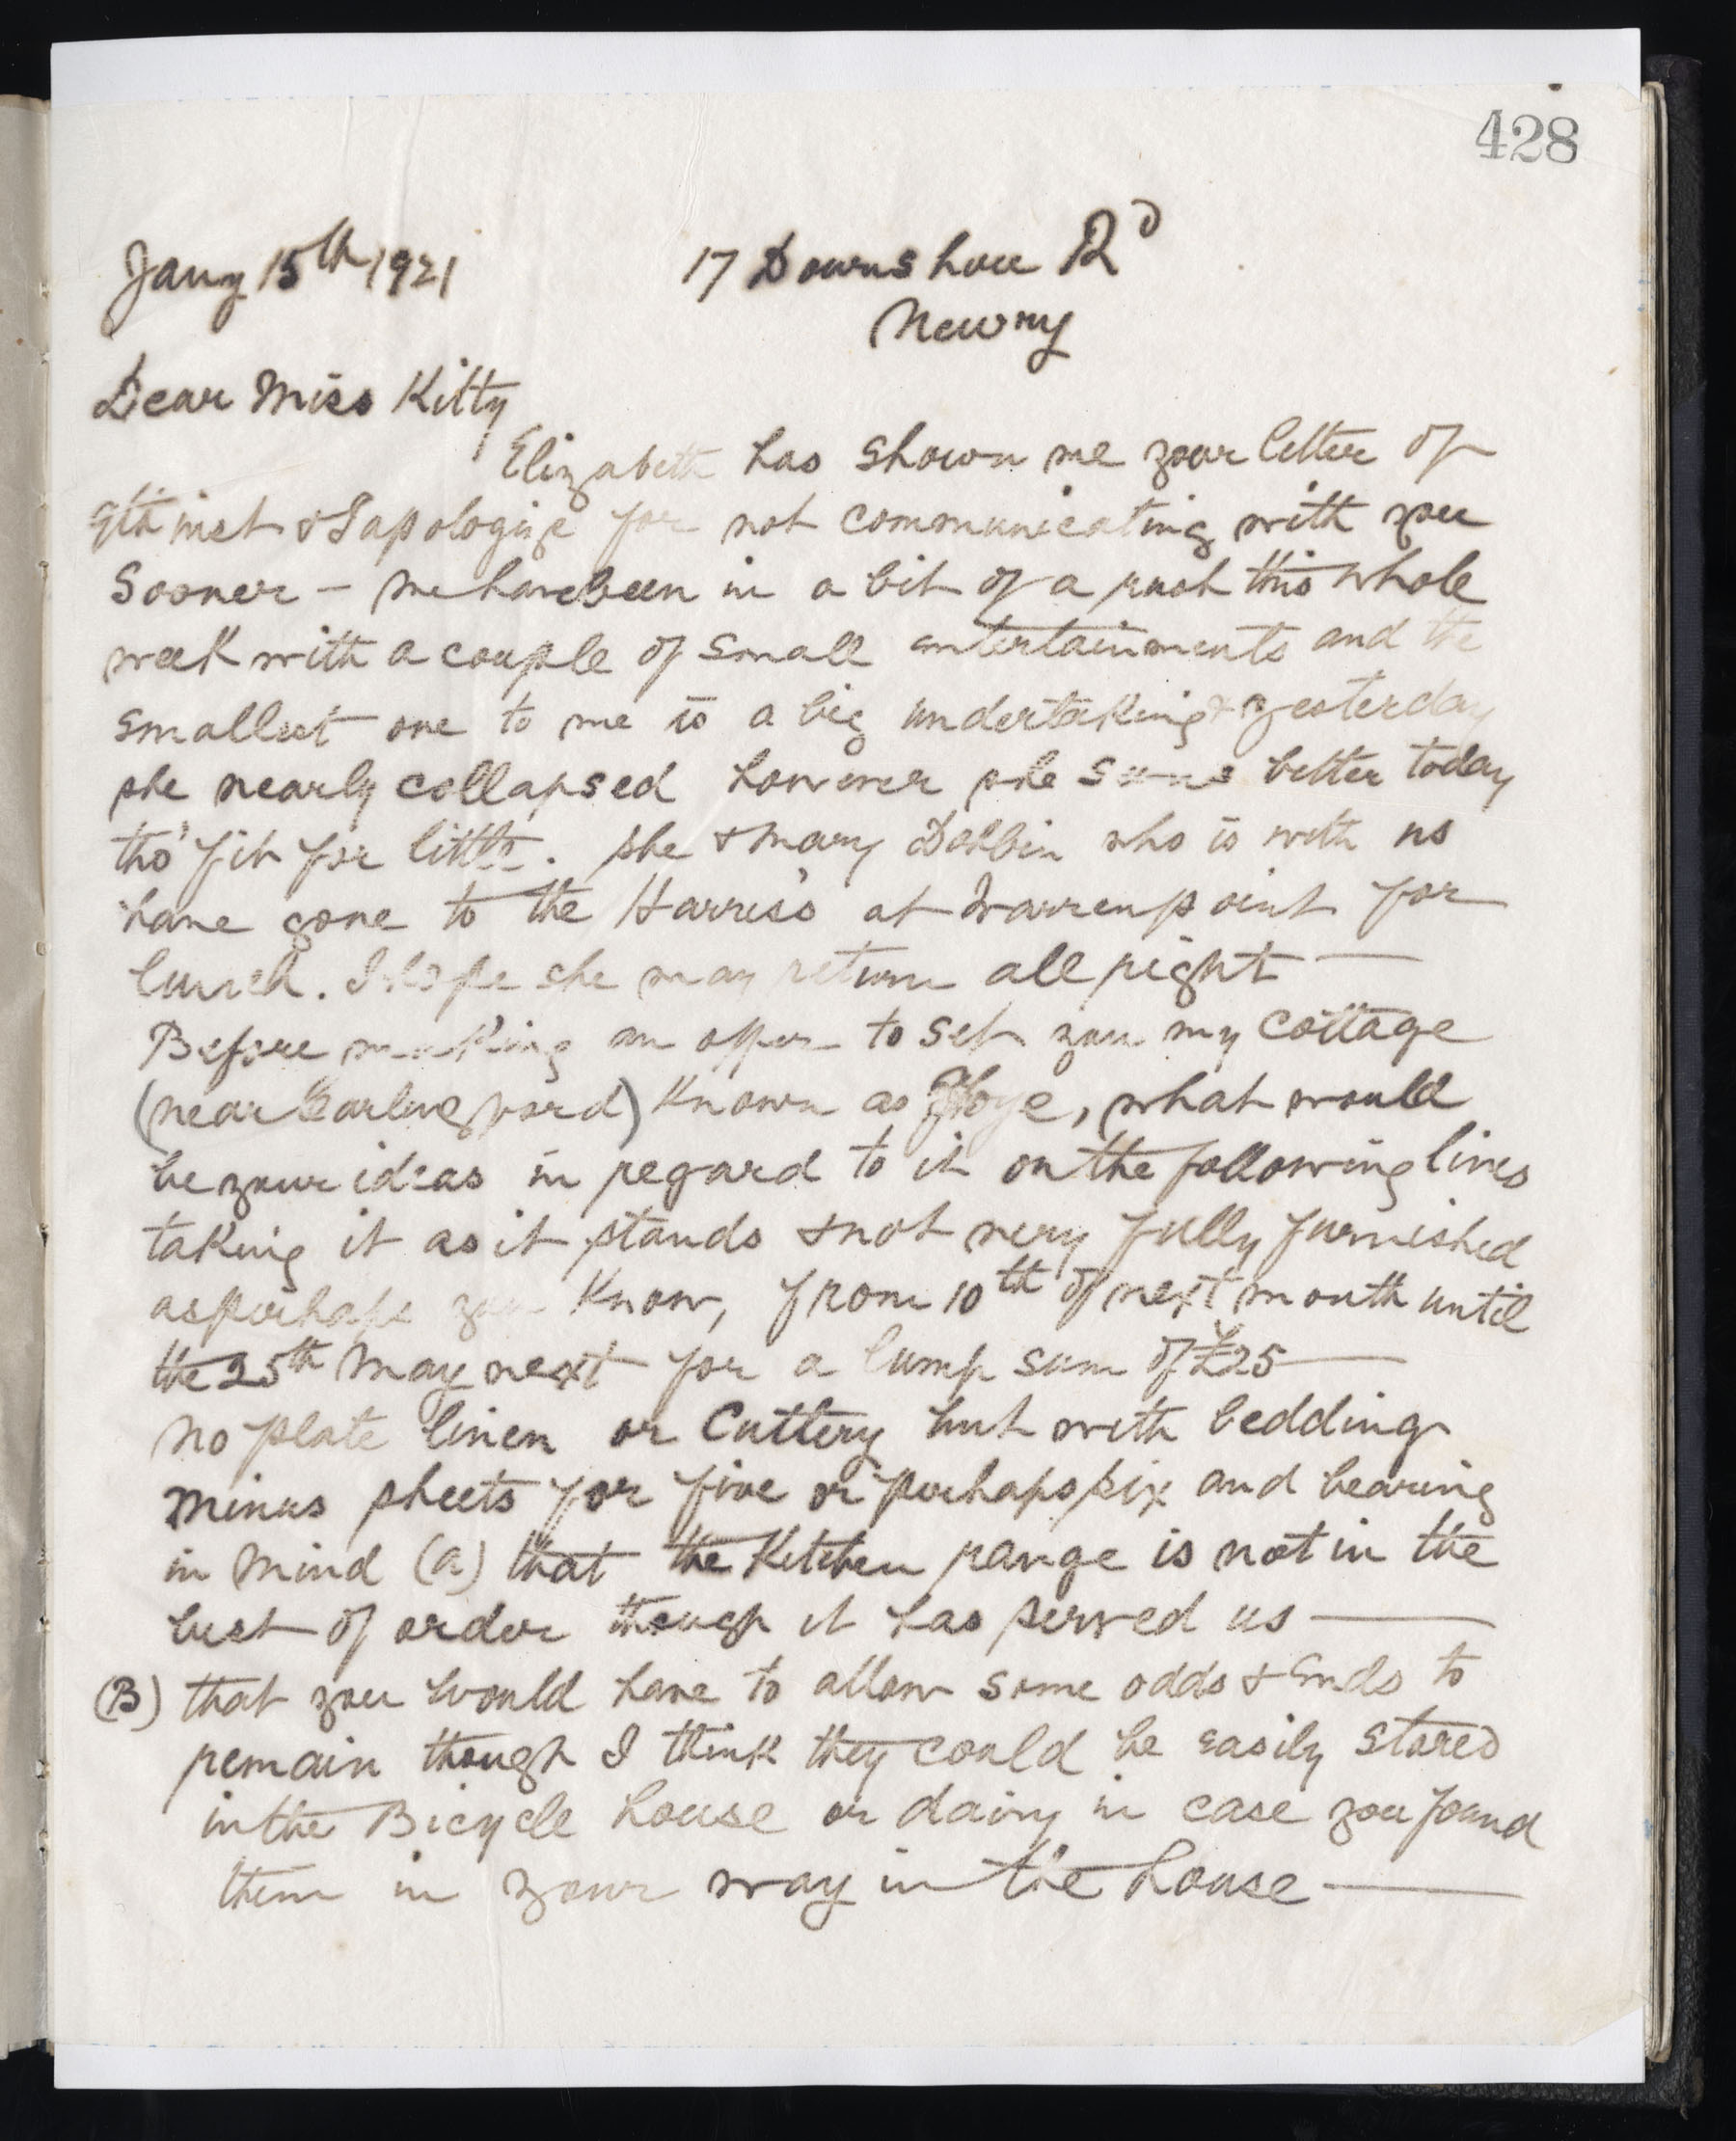 428
Jany 15th 1921 17 Downshire Rd
Newry
Dear Miss Kitty
Elizabeth has shown me your letter of
9th inst & I apologize for not communicating with you
Sooner — We have been in a bit of a rush this whole
week with a couple of small entertainments and the
smallest one to me is a big undertaking & yesterday
she nearly collapsed however she seems better today
tho' fit for little. She & Mary Dobbin who is with us
have gone to the Harris's at Warrenpoint for
lunch. I hope she may return all right —
Before making an offer to set you my Cottage
(near Carlingford) Known as , what would
be your ideas in regard to it on the following lines
taking it as it stands & not very fully furnished
as perhaps you Know, from 10th of next month until
the 25th May next for a lump sum of £25 —
No plate linen or Cuttery but with bedding
minus sheets for five or perhaps six and bearing
in mind (a) that the Kitchen range is not in the
best of order though it has served us —
(B) that you would have to allow some odds & ends to
remain though I think they could be easily stored
in the Bicycle house or dairy in case you found
them in your way in the house —